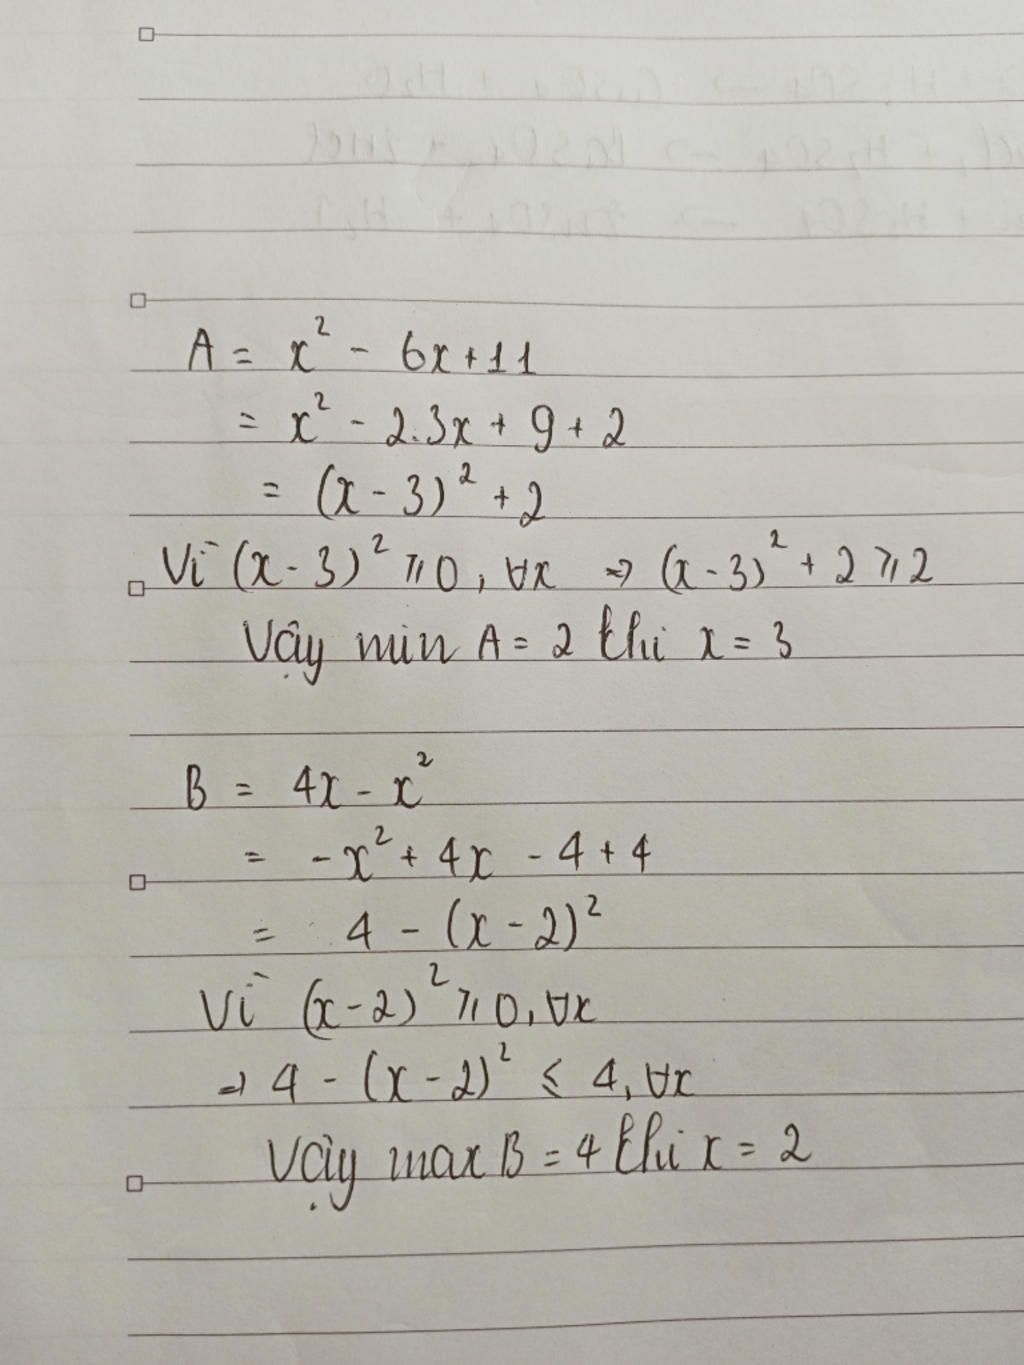 A = x² - 6x + 11
= x² - 2.3x + 9 + 2
= (x - 3)² + 2
Vì (x - 3)² ⩾ 0, ∀x ⇒ (x - 3)² + 2 ⩾ 2
Vậy min A = 2 khi x = 3
B = 4x - x²
= -x² + 4x - 4 + 4
= 4 - (x - 2)²
Vì (x - 2)² ⩾ 0, ∀x
⇒ 4 - (x - 2)² ⩽ 4, ∀x
Vậy max B = 4 khi x = 2